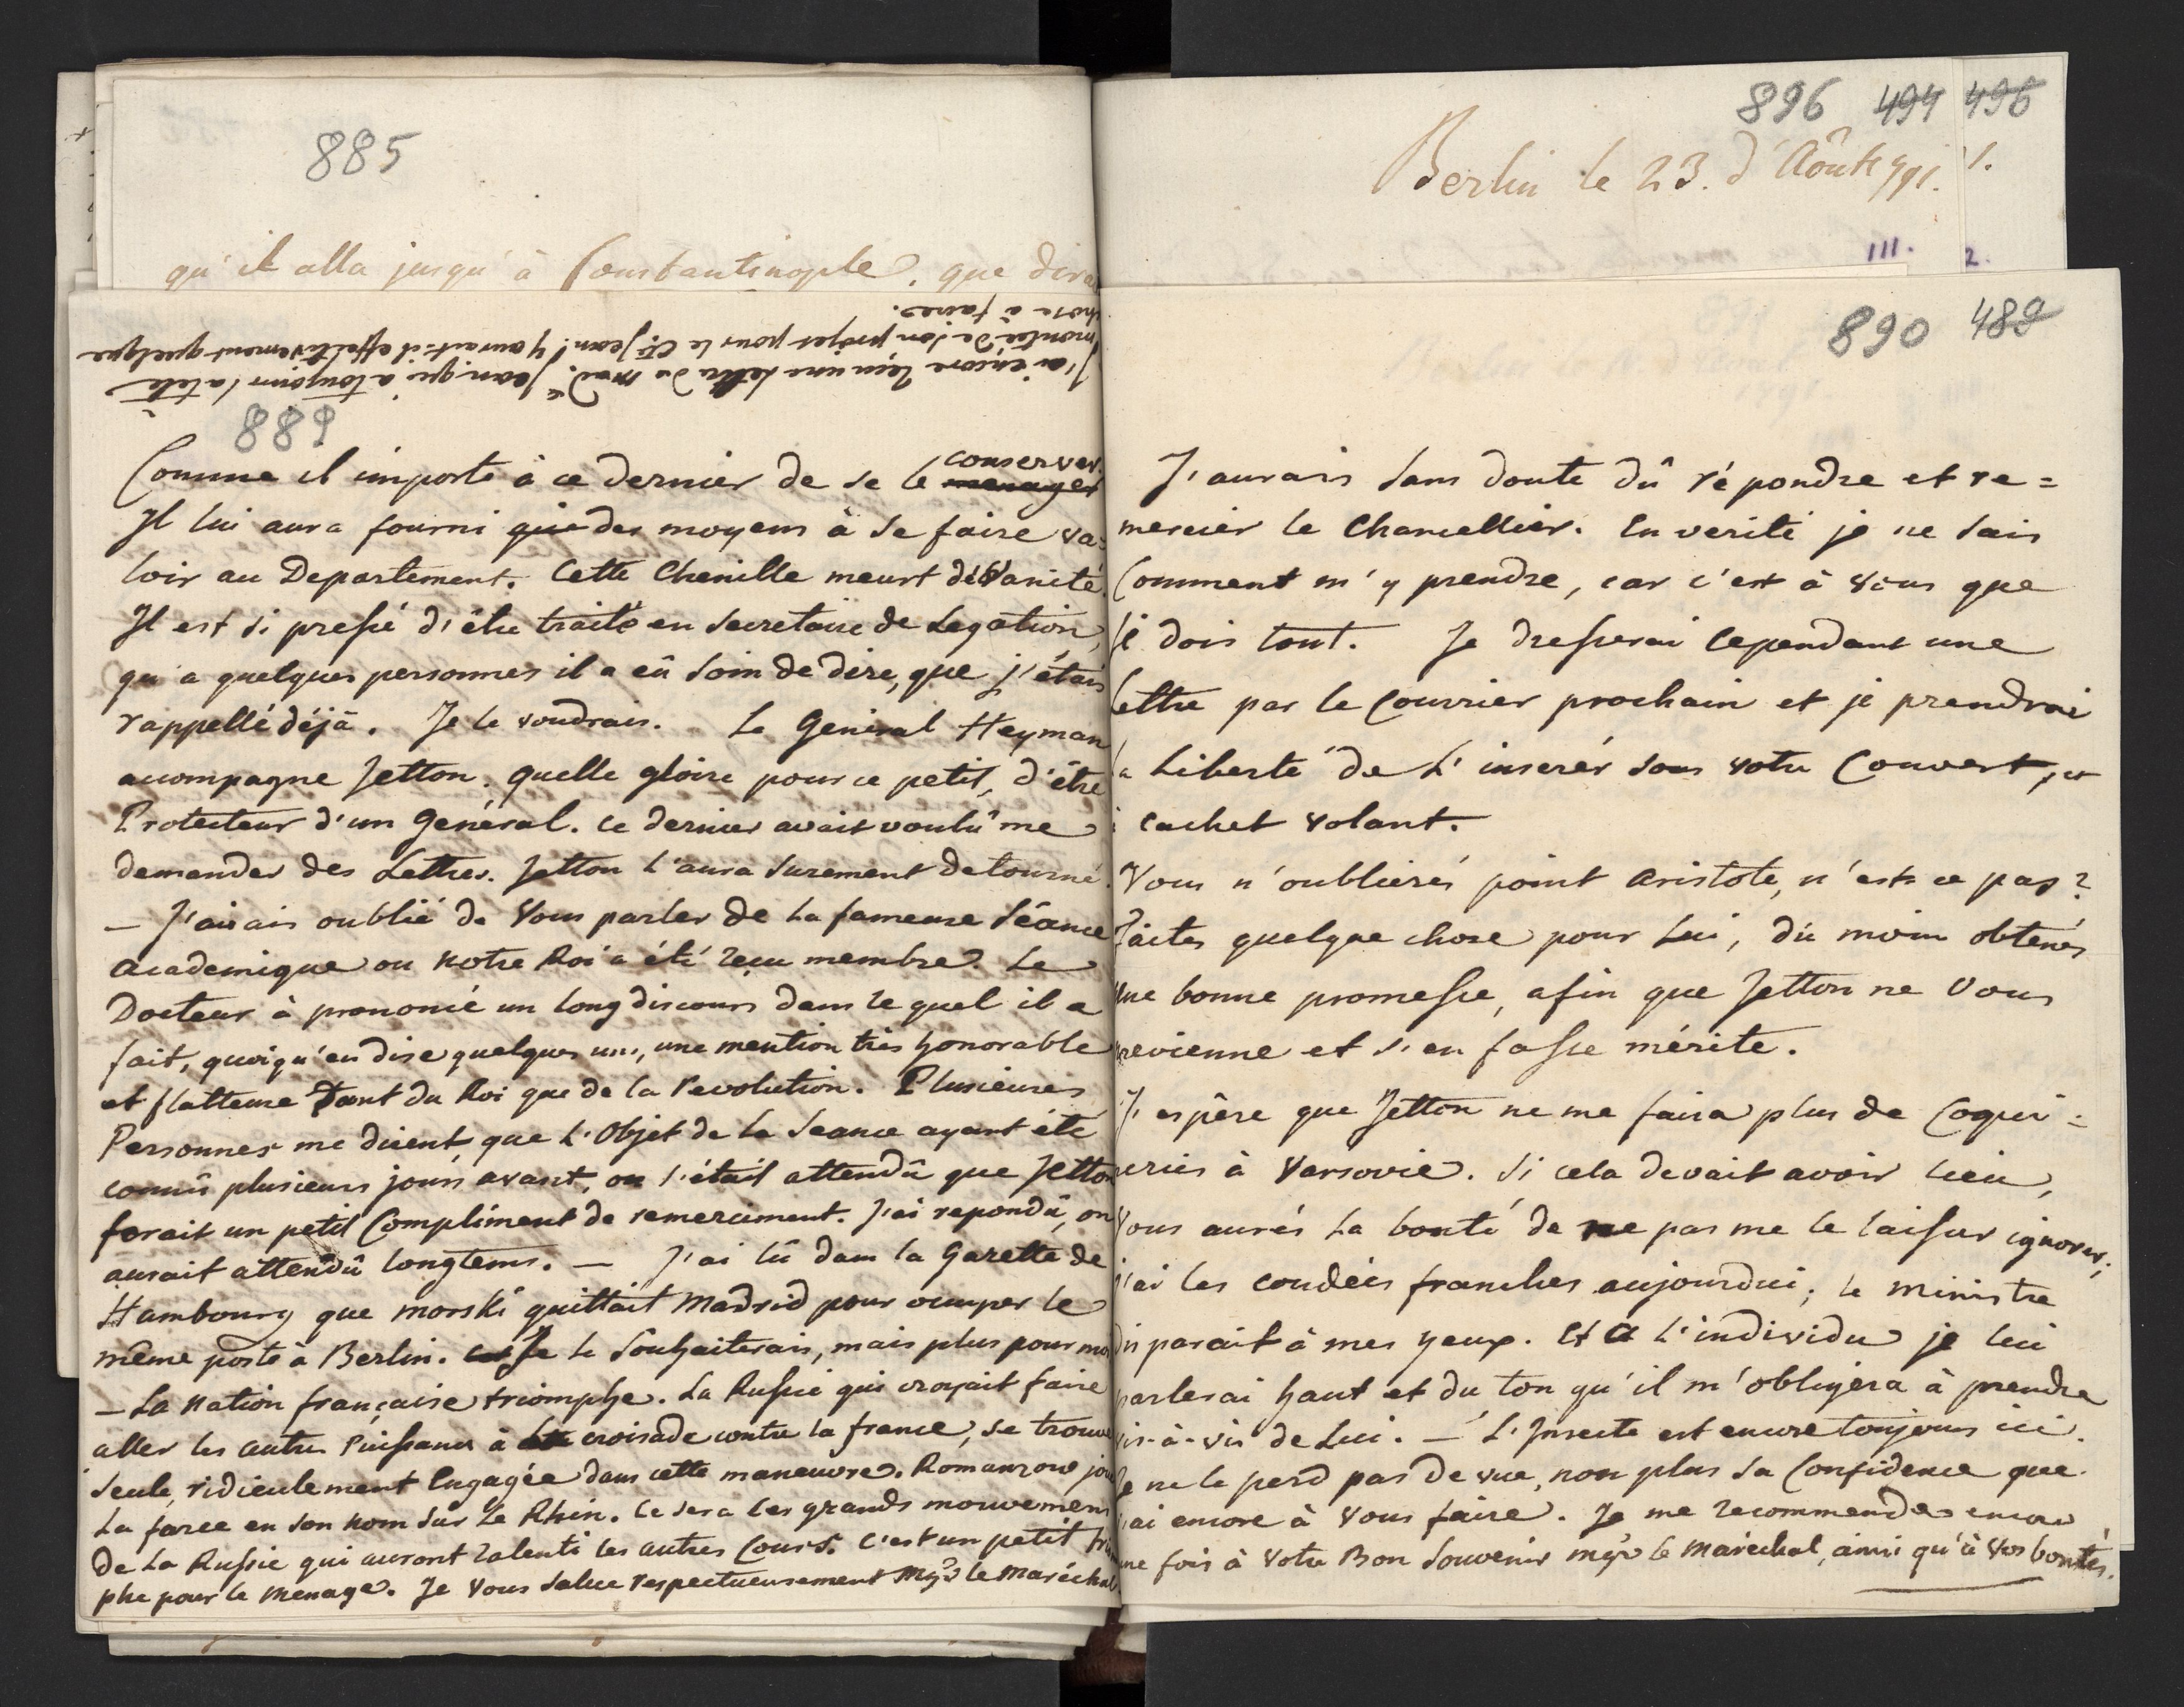 885
qu'il alla jusqu'à Constantinople. que dira
J'ai encore reçu une Lettre de Mad.e Jean qui a toujours la tete
montée de son projet pour le Cte Jean. Y aurait-il effectivement quelque
chose à faire.
889
conserver.
Comme il importe à ce dernier de se le menager
Il lui aura fourni que des moyens à se faire va=
loir au Departement. Cette Chenille meurt de Vanité.
Il est si pressé d'être traité en Secretaire de Legation,
qu'a quelques personnes il a eû soin de dire, que j'étais
rappellé déjà. Je le voudrais. Le Géneral Heyman
accompagne Jetton. quelle gloire pour ce petit, d'être
Protecteur d'un Général. ce dernier avait voulû me
demander des Lettres. Jetton l'aura surement detourné.
— J'avais oublié de Vous parler de la fameuse Séance
academique ou notre Roi a été reçu membre. Le
Docteur à prononcé un long discours dans le quel il a
fait, quoiqu'en dise quelques uns, une mention très honorable
et flatteuse Tant du Roi que de la revolution. Plusieures
Personnes me disent, que l'Objet de la Seance ayant été
connû plusieurs jours avant, on s'était attendû que Jetton
ferait un petit Compliment de remerciment. J'ai repondû, on
aurait attendû longtems. — J'ai lû dans la Gazette de
Hambourg que morski quittait Madrid pour occuper le
même poste à Berlin. Je le Souhaiterais, mais plus pour moi
— La Nation française triomphe. La Russie qui croyait faire
aller les autres Puissances à croisade contre la france, se trouve
seule, ridiculement Engagée dans cette manœuvre. Romanzow joue
La farce en son nom sur le Rhin. Ce sera les grands mouvemens
de La Russie qui auront ralenti les autres Cours. C'est un petit trium
phe pour le menage. Je Vous salue respectueusement Mgr le Maréchal.
896 494 496
Berlin le 23. d'Août 791. 1.
III. 2.
890 489
J'aurais sans doute dû répondre et re=
mercier le Chancellier. En verité je ne sais
Comment m'y prendre, car c'est à Vous que
je dois tout. Je dresserai Cependant une
Lettre par le Courrier prochain et je prendrai
la Liberté de L'inserér sous votre Couvert, et
à cachet volant.
Vous n'oublierés point Aristote, n'est-ce pas?
Faites quelque chose pour Lui, du moins obtenés
une bonne promesse, afin que Jetton ne Vous
previenne et s'en fasse mérite.
J'espère que Jetton ne me faira plus de Coqui=
neries à Varsovie. Si cela devait avoir lieu,
Vous aurés la bonté de ne pas me le laisser ignorer;
j'ai les coudées franches aujourdui; le Ministre
disparait à mes yeux. Et à l'individu je lui
parlerai haut et du ton qu'il m'obligera à prendre
vis-à-vis de Lui. — L'Insecte est encore toujours ici.
Je ne le perd pas de vue, non plus la Confidence que
j'ai encore à Vous faire. Je me recommende encore
une fois à Votre Bon Souvenir Mgr le Maréchal, ainsi qu'à Vos bontés.